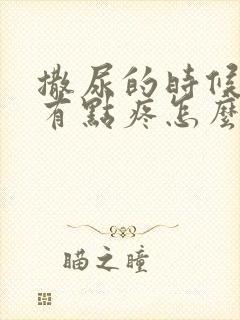 撒尿的時候
有點疼怎麼
瞄之瞳